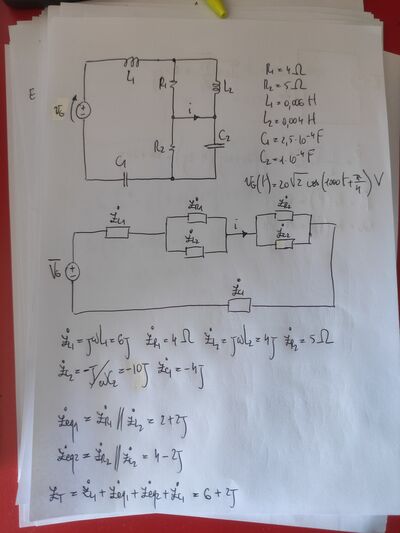 E
L₁
R₁
L₂
i
v_G
R₂
C₂
C₁
R₁ = 4 Ω
R₂ = 5 Ω
L₁ = 0,006 H
L₂ = 0,004 H
C₁ = 2,5·10⁻⁴ F
C₂ = 1·10⁻⁴ F
v_G(t) = 20√2 cos(1000t + π/4) V
Ż_L1
Ż_R1
Ż_L2
i
Ż_R2
Ż_C2
V̅_G
Ż_C1
Ż_L1 = jωL₁ = 6j Ż_R1 = 4 Ω Ż_L2 = jωL₂ = 4j Ż_R2 = 5 Ω
Ż_C2 = -j/ωC₂ = -10j Ż_C1 = -4j
Ż_eq1 = Ż_R1 // Ż_L2 = 2+2j
Ż_eq2 = Ż_R2 // Ż_C2 = 4-2j
Ż_T = Ż_L1 + Ż_eq1 + Ż_eq2 + Ż_C1 = 6+2j